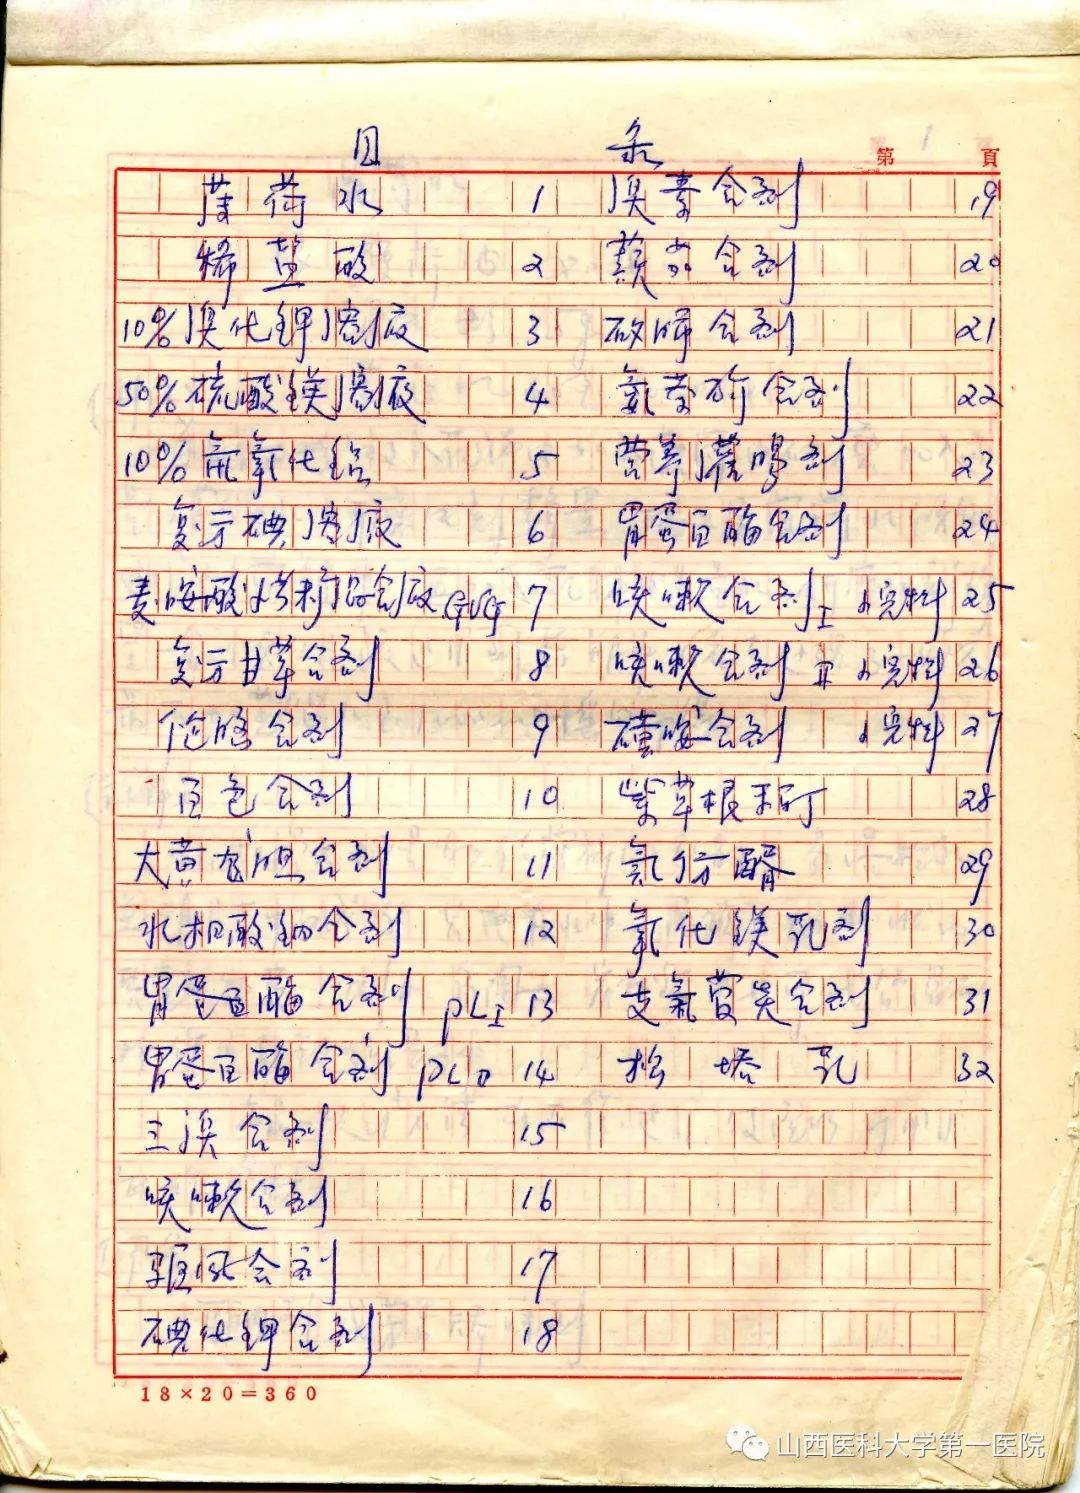 目 录
第 1 頁
薄荷水 1
稀盐酸 2
10%溴化钾溶液 3
50%硫酸镁溶液 4
10%氢氧化铝 5
复方碘溶液 6
麦角胺 7
复方甘草合剂 8
合剂 9
百色合剂 10
大黄龙胆合剂 11
水杨酸钠合剂 12
胃蛋白酶合剂 PLI 13
胃蛋白酶合剂 PLII 14
三溴合剂 15
咳嗽合剂 16
驱风合剂 17
碘化钾合剂 18
溴素合剂 19
颠茄合剂 20
合剂 21
氨茶 合剂 22
营养灌肠剂 23
胃蛋白酶合剂 24
咳嗽合剂 I 小儿科 25
咳嗽合剂 II 小儿科 26
磺胺合剂 小儿科 27
紫草根 28
氯 醛 29
氧化镁乳剂 30
支气管炎合剂 31
松塔乳 32
18×20=360
山西医科大学第一医院